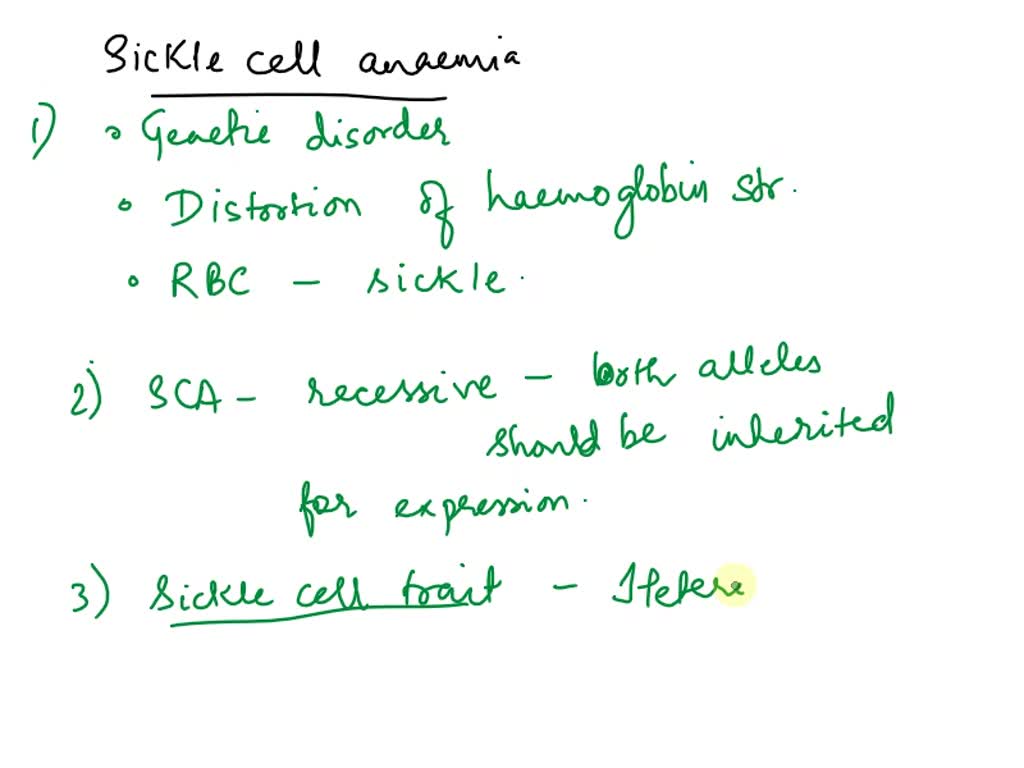 Sickle cell anaemia
1) • Genetic disorder
• Distortion of haemoglobin str.
• RBC - sickle.
2) SCA - recessive - both alleles
should be inherited
for expression.
3) Sickle cell trait - Hetere